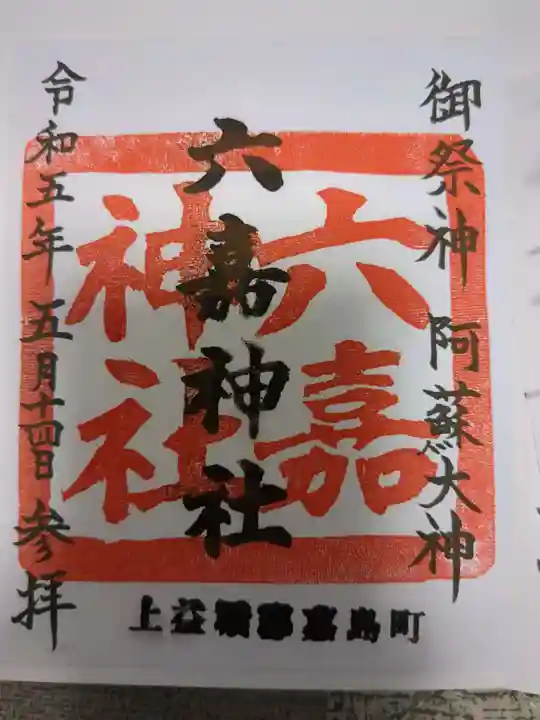 御祭神 阿蘇大神
六嘉神社
六嘉
神社
令和五年 五月十四日 参拝
上益城郡嘉島町